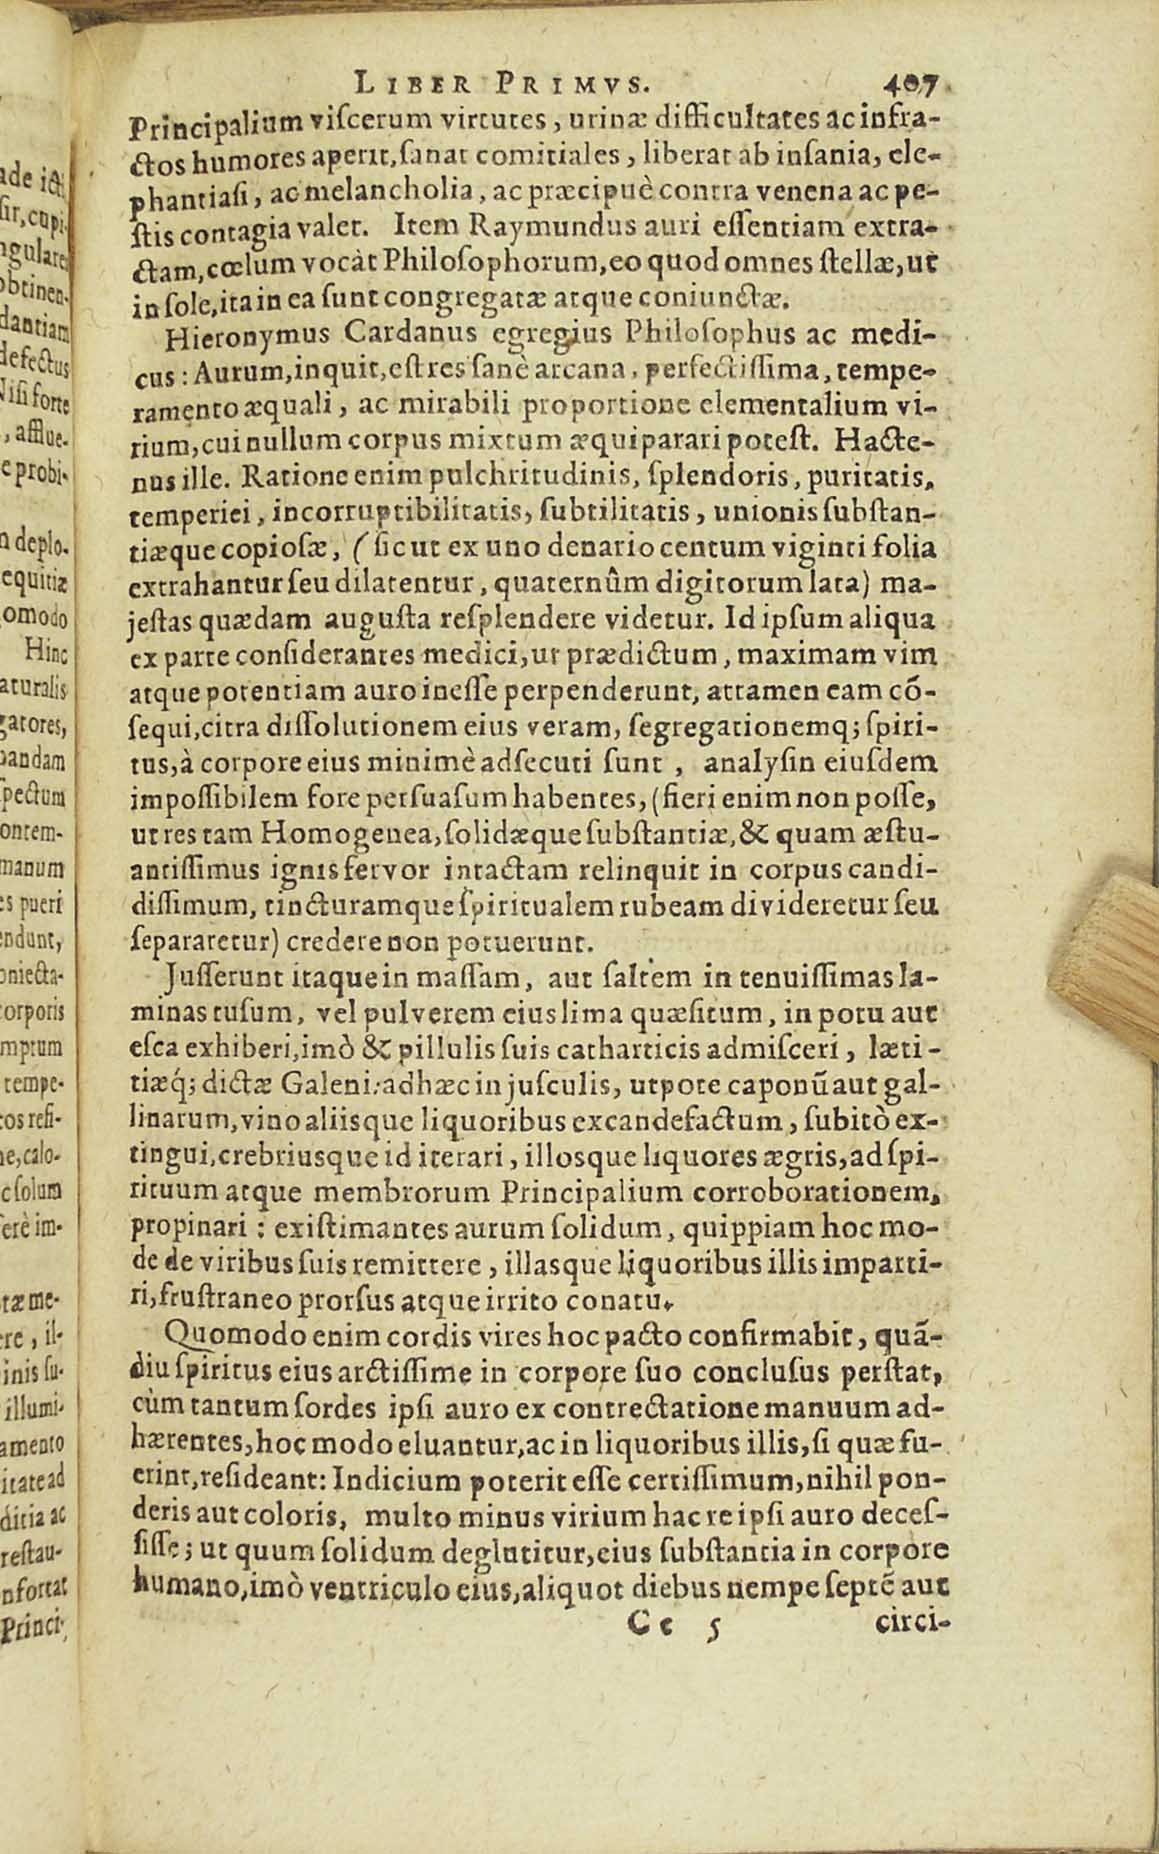 LIBER PRIMVS. 407
Principalium viſcerum virtutes, urinæ difficultates ac infra-
ctos humores aperit, ſanat comitiales, liberat ab inſania, ele-
phantiaſi, ac melancholia, ac præcipuè contra venena ac pe-
ſtis contagia valet. Item Raymundus auri eſſentiam extra-
ctam, cœlum vocàt Philoſophorum, eo quod omnes ſtellæ, ut
in ſole, ita in ea ſunt congregatæ atque coniunctæ.
Hieronymus Cardanus egregius Philoſophus ac medi-
cus: Aurum, inquit, eſt res ſanè arcana, perfectiſſima, tempe-
ramento æquali, ac mirabili proportione elementalium vi-
rium, cui nullum corpus mixtum æquiparari poteſt. Hacte-
nus ille. Ratione enim pulchritudinis, ſplendoris, puritatis,
temperiei, incorruptibilitatis, ſubtilitatis, unionis ſubſtan-
tiæque copioſæ, (ſic ut ex uno denario centum viginti folia
extrahantur ſeu dilatentur, quaternûm digitorum lata) ma-
jeſtas quædam auguſta reſplendere videtur. Id ipſum aliqua
ex parte conſiderantes medici, ut prædictum, maximam vim
atque potentiam auro ineſſe perpenderunt, attamen eam cõ-
ſequi, citra diſſolutionem eius veram, ſegregationemq; ſpiri-
tus, à corpore eius minimè adſecuti ſunt, analyſin eiuſdem
impoſſibilem fore perſuaſum habentes, (fieri enim non poſſe,
ut res tam Homogenea, ſolidæque ſubſtantiæ, & quam æſtu-
antiſſimus ignis fervor intactam relinquit in corpus candi-
diſſimum, tincturamque ſpiritualem rubeam divideretur ſeu
ſepararetur) credere non potuerunt.
Juſſerunt itaque in maſſam, aut ſaltem in tenuiſſimas la-
minas tuſum, vel pulverem eius lima quæſitum, in potu aut
eſca exhiberi, imò & pillulis ſuis catharticis admiſceri, læti-
tiæq́; dictæ Galeni: adhæc in juſculis, utpote caponũ aut gal-
linarum, vino aliisque liquoribus excandefactum, ſubitò ex-
tingui, crebriusque id iterari, illosque liquores ægris, ad ſpi-
rituum atque membrorum Principalium corroborationem,
propinari: exiſtimantes aurum ſolidum, quippiam hoc mo-
de de viribus ſuis remittere, illasque liquoribus illis imparti-
ri, fruſtraneo prorſus atque irrito conatu.
Quomodo enim cordis vires hoc pacto confirmabit, quã-
diu ſpiritus eius arctiſſime in corpore ſuo concluſus perſtat,
cùm tantum ſordes ipſi auro ex contrectatione manuum ad-
hærentes, hoc modo eluantur, ac in liquoribus illis, ſi quæ fu-
erint, reſideant: Indicium poterit eſſe certiſſimum, nihil pon-
deris aut coloris, multo minus virium hac re ipſi auro deceſ-
ſiſſe; ut quum ſolidum deglutitur, eius ſubſtantia in corpore
humano, imò ventriculo eius, aliquot diebus nempe ſeptẽ aut
Cc 5 circi-